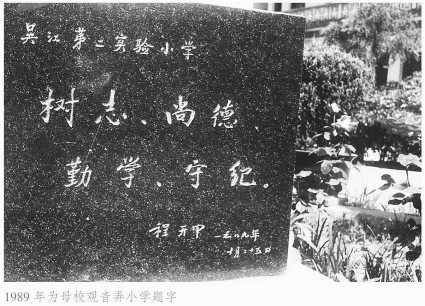 吴江第二实验小学
树志、尚德、
勤学、守纪。
程开甲 一九八九年
十月二十五日
1989 年为母校观音弄小学题字